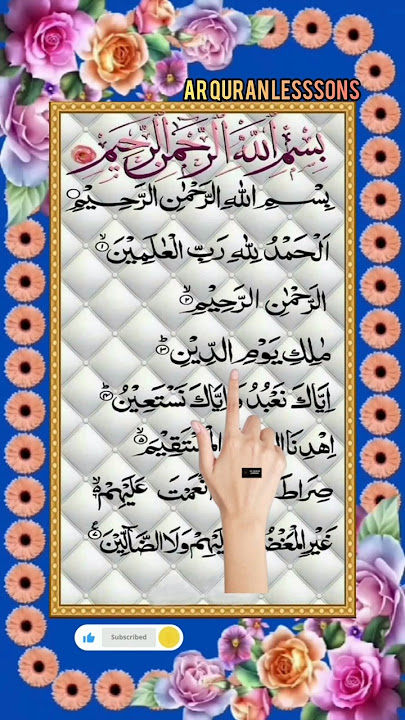 AR QURAN LESSSONS
بِسْمِ اللّٰهِ الرَّحْمٰنِ الرَّحِيْمِ
بِسْمِ اللّٰهِ الرَّحْمٰنِ الرَّحِيْمِ
اَلْحَمْدُ لِلّٰهِ رَبِّ الْعٰلَمِيْنَ ١
الرَّحْمٰنِ الرَّحِيْمِ ٢
مٰلِكِ يَوْمِ الدِّيْنِ ٣
اِيَّاكَ نَعْبُدُ وَاِيَّاكَ نَسْتَعِيْنُ ٤
اِهْدِنَا الْمُسْتَقِيْمَ ٥
صِرَاطَ نْعَمْتَ عَلَيْهِمْ
غَيْرِ الْمَغْضُ لَيْهِمْ وَلَا الضَّآلِّيْنَ
Subscribed